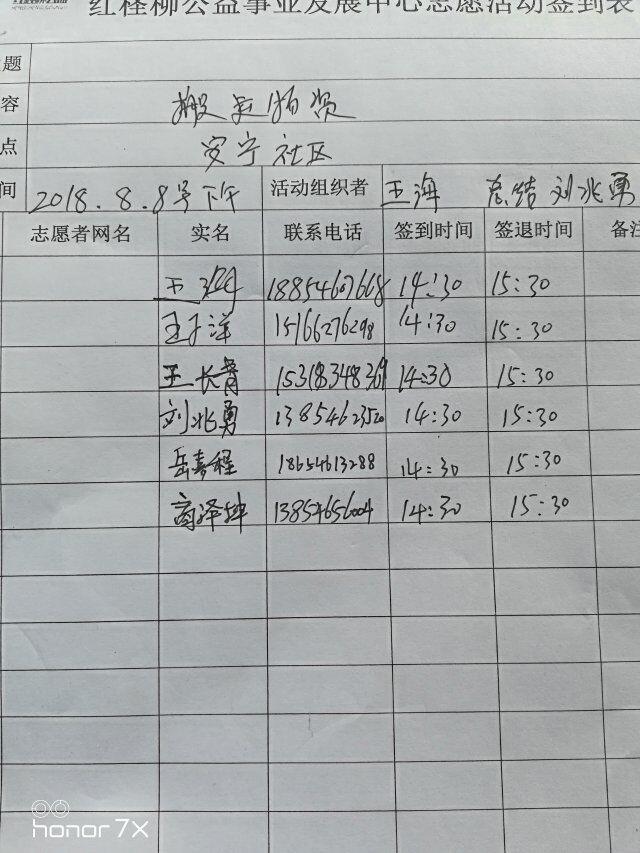 红柽柳公益事业发展中心志愿活动签到表
题
容 搬运物资
点 安宁社区
间 2018.8.8号下午 活动组织者 王海 总结 刘兆勇
志愿者网名 实名 联系电话 签到时间 签退时间 备注
王 18854607668 14:30 15:30
王子洋 15166276298 14:30 15:30
王长青 15318348369 14:30 15:30
刘兆勇 13854623520 14:30 15:30
岳嘉程 18654613288 14:30 15:30
商泽坤 13854656004 14:30 15:30
honor 7X